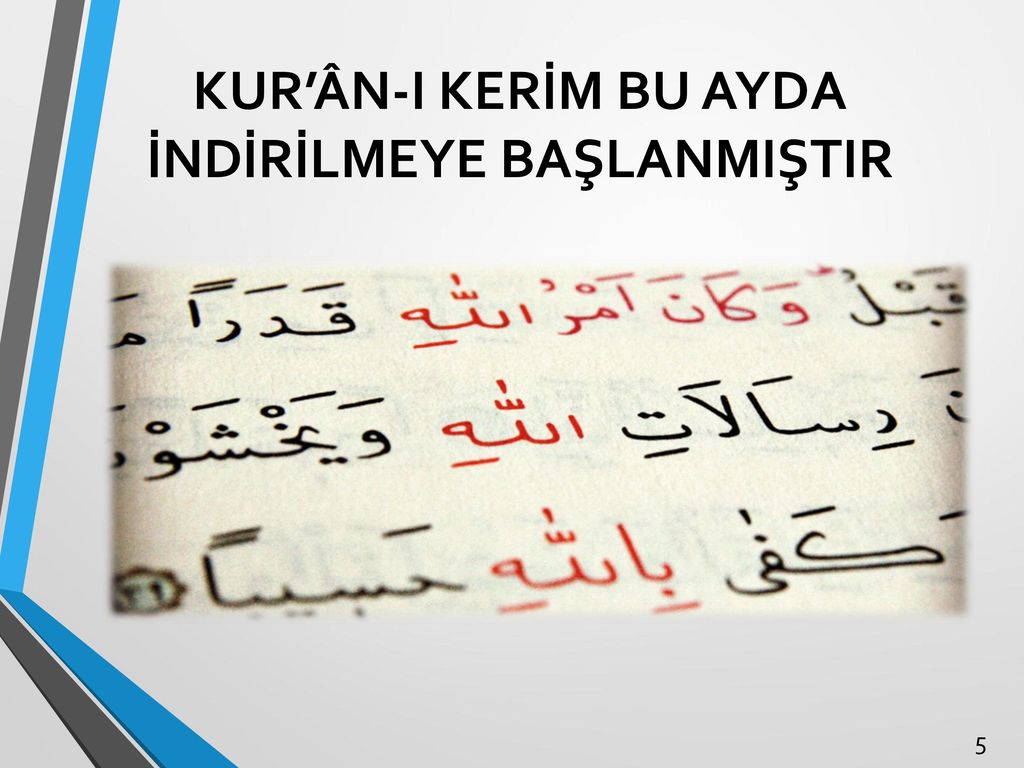 KUR’ÂN-I KERİM BU AYDA
İNDİRİLMEYE BAŞLANMIŞTIR
قَبْلُ وَكَانَ اَمْرُ اللّٰهِ قَدَرًا
رِسَالَاتِ اللّٰهِ وَيَخْشَوْ
كَفٰى بِاللّٰهِ حَسِيبًا
5